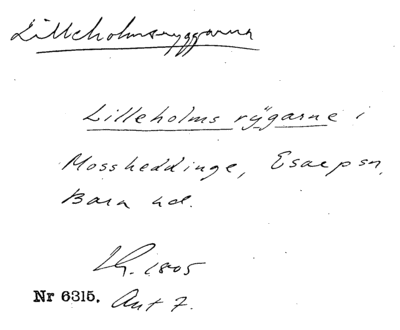 Lilleholmsryggarna
Lilleholms rÿgarne i
Mossheddinge, Esaepsn,
Bara hd.
1805
Nr 6315. Akt 7.